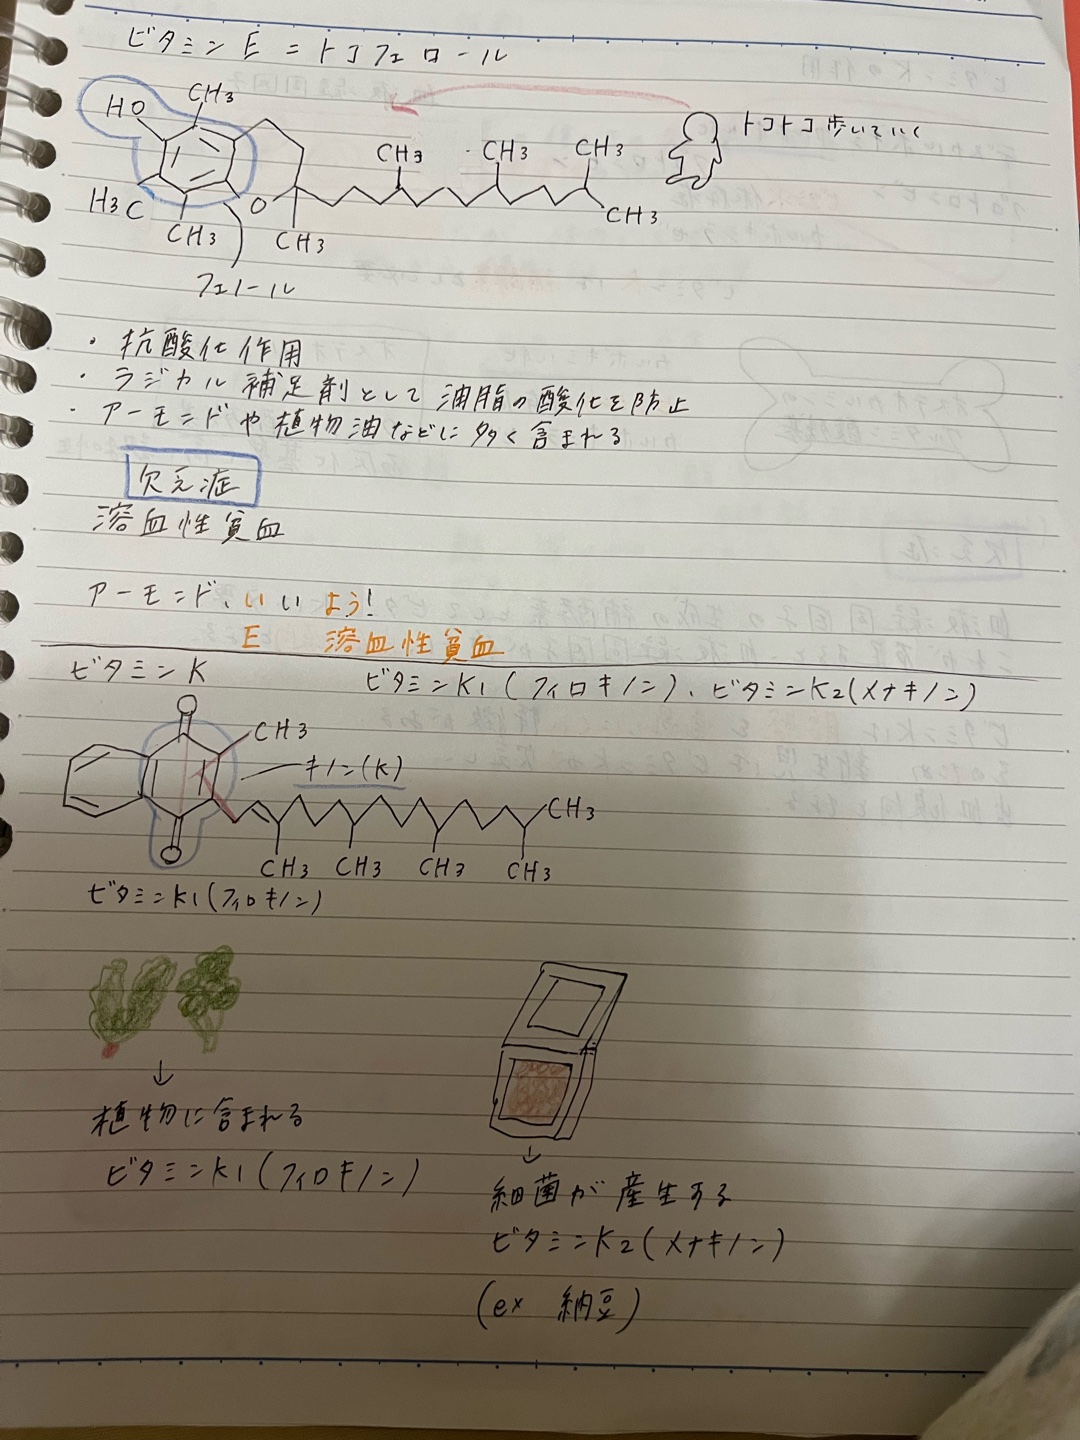 ビタミンE=トコフェロール
HO
CH3
CH3
CH3
CH3
トコトコ歩いていく
H3C
O
CH3
CH3
CH3
フェノール
・抗酸化作用
・ラジカル補足剤として油脂の酸化を防止
・アーモンドや植物油などに多く含まれる
欠乏症
溶血性貧血
アーモンド、いいよう!
E 溶血性貧血
ビタミンK ビタミンK1(フィロキノン)、ビタミンK2(メナキノン)
O
CH3
キノン(K)
CH3
O
CH3 CH3 CH3 CH3
ビタミンK1(フィロキノン)
↓
植物に含まれる
ビタミンK1(フィロキノン)
↓
細菌が産生する
ビタミンK2(メナキノン)
(ex 納豆)